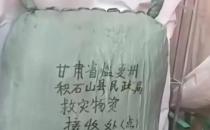 甘肃省临夏州
积石山县民政局
救灾物资
接收处(点)